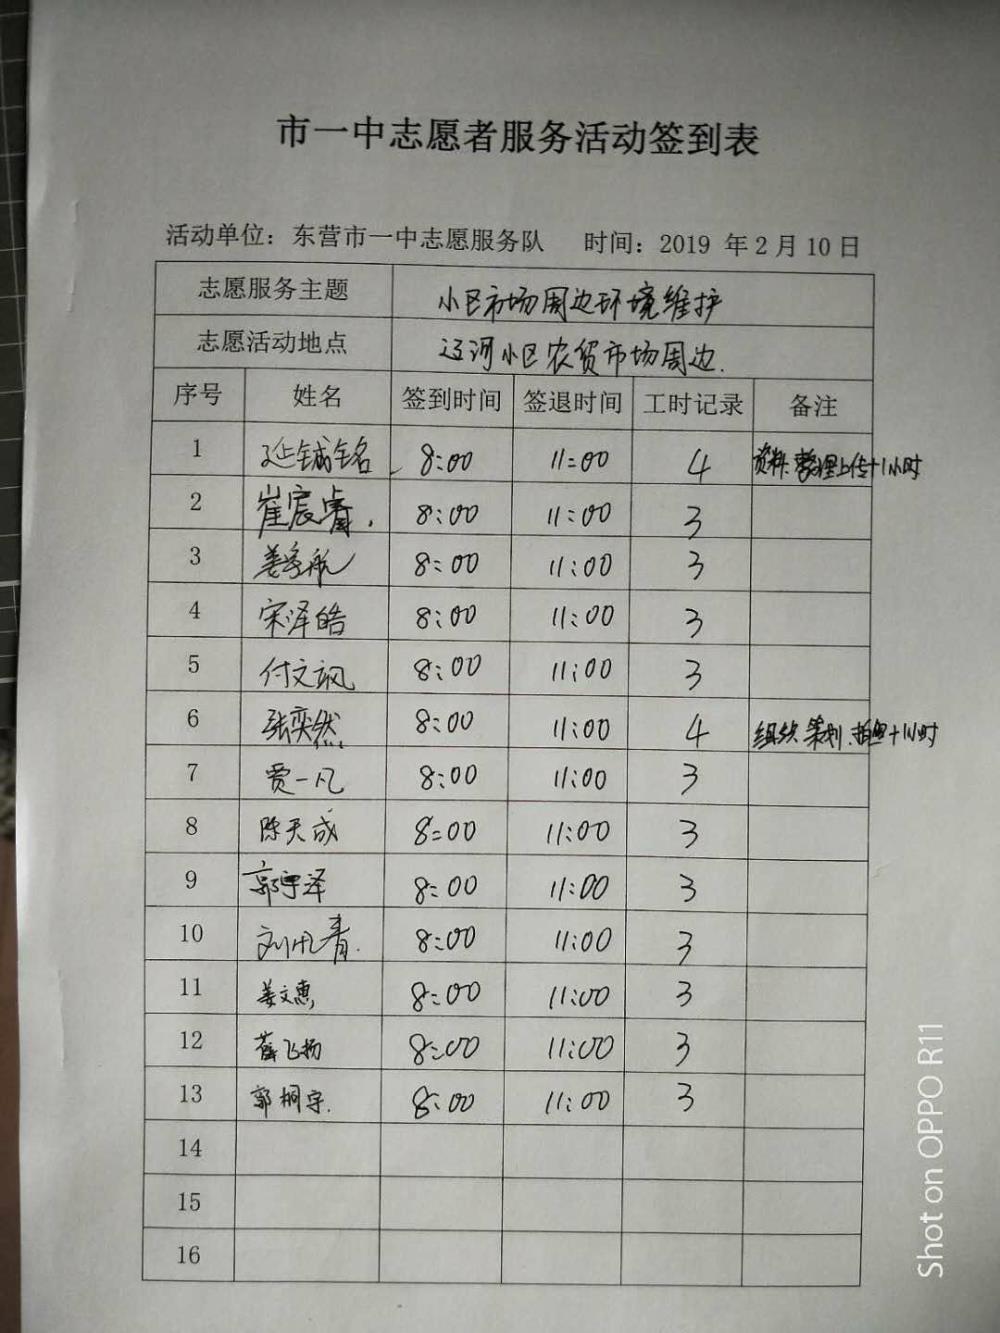 市一中志愿者服务活动签到表
活动单位：东营市一中志愿服务队 时间：2019 年2月10日
志愿服务主题 小区市场周边环境维护
志愿活动地点 辽河小区农贸市场周边.
序号 姓名 签到时间 签退时间 工时记录 备注
1 延铖铭 8:00 11:00 4 资料整理上传+1小时
2 崔宸睿. 8:00 11:00 3
3 姜 航 8:00 11:00 3
4 宋泽皓 8:00 11:00 3
5 付文飒 8:00 11:00 3
6 张奕然 8:00 11:00 4 组织策划.拍照+1小时
7 贾一凡 8:00 11:00 3
8 陈天成 8:00 11:00 3
9 郭宇泽 8:00 11:00 3
10 刘 青. 8:00 11:00 3
11 姜文惠 8:00 11:00 3
12 薛飞扬 8:00 11:00 3
13 郭桐宇. 8:00 11:00 3
14
15
16
Shot on OPPO R11